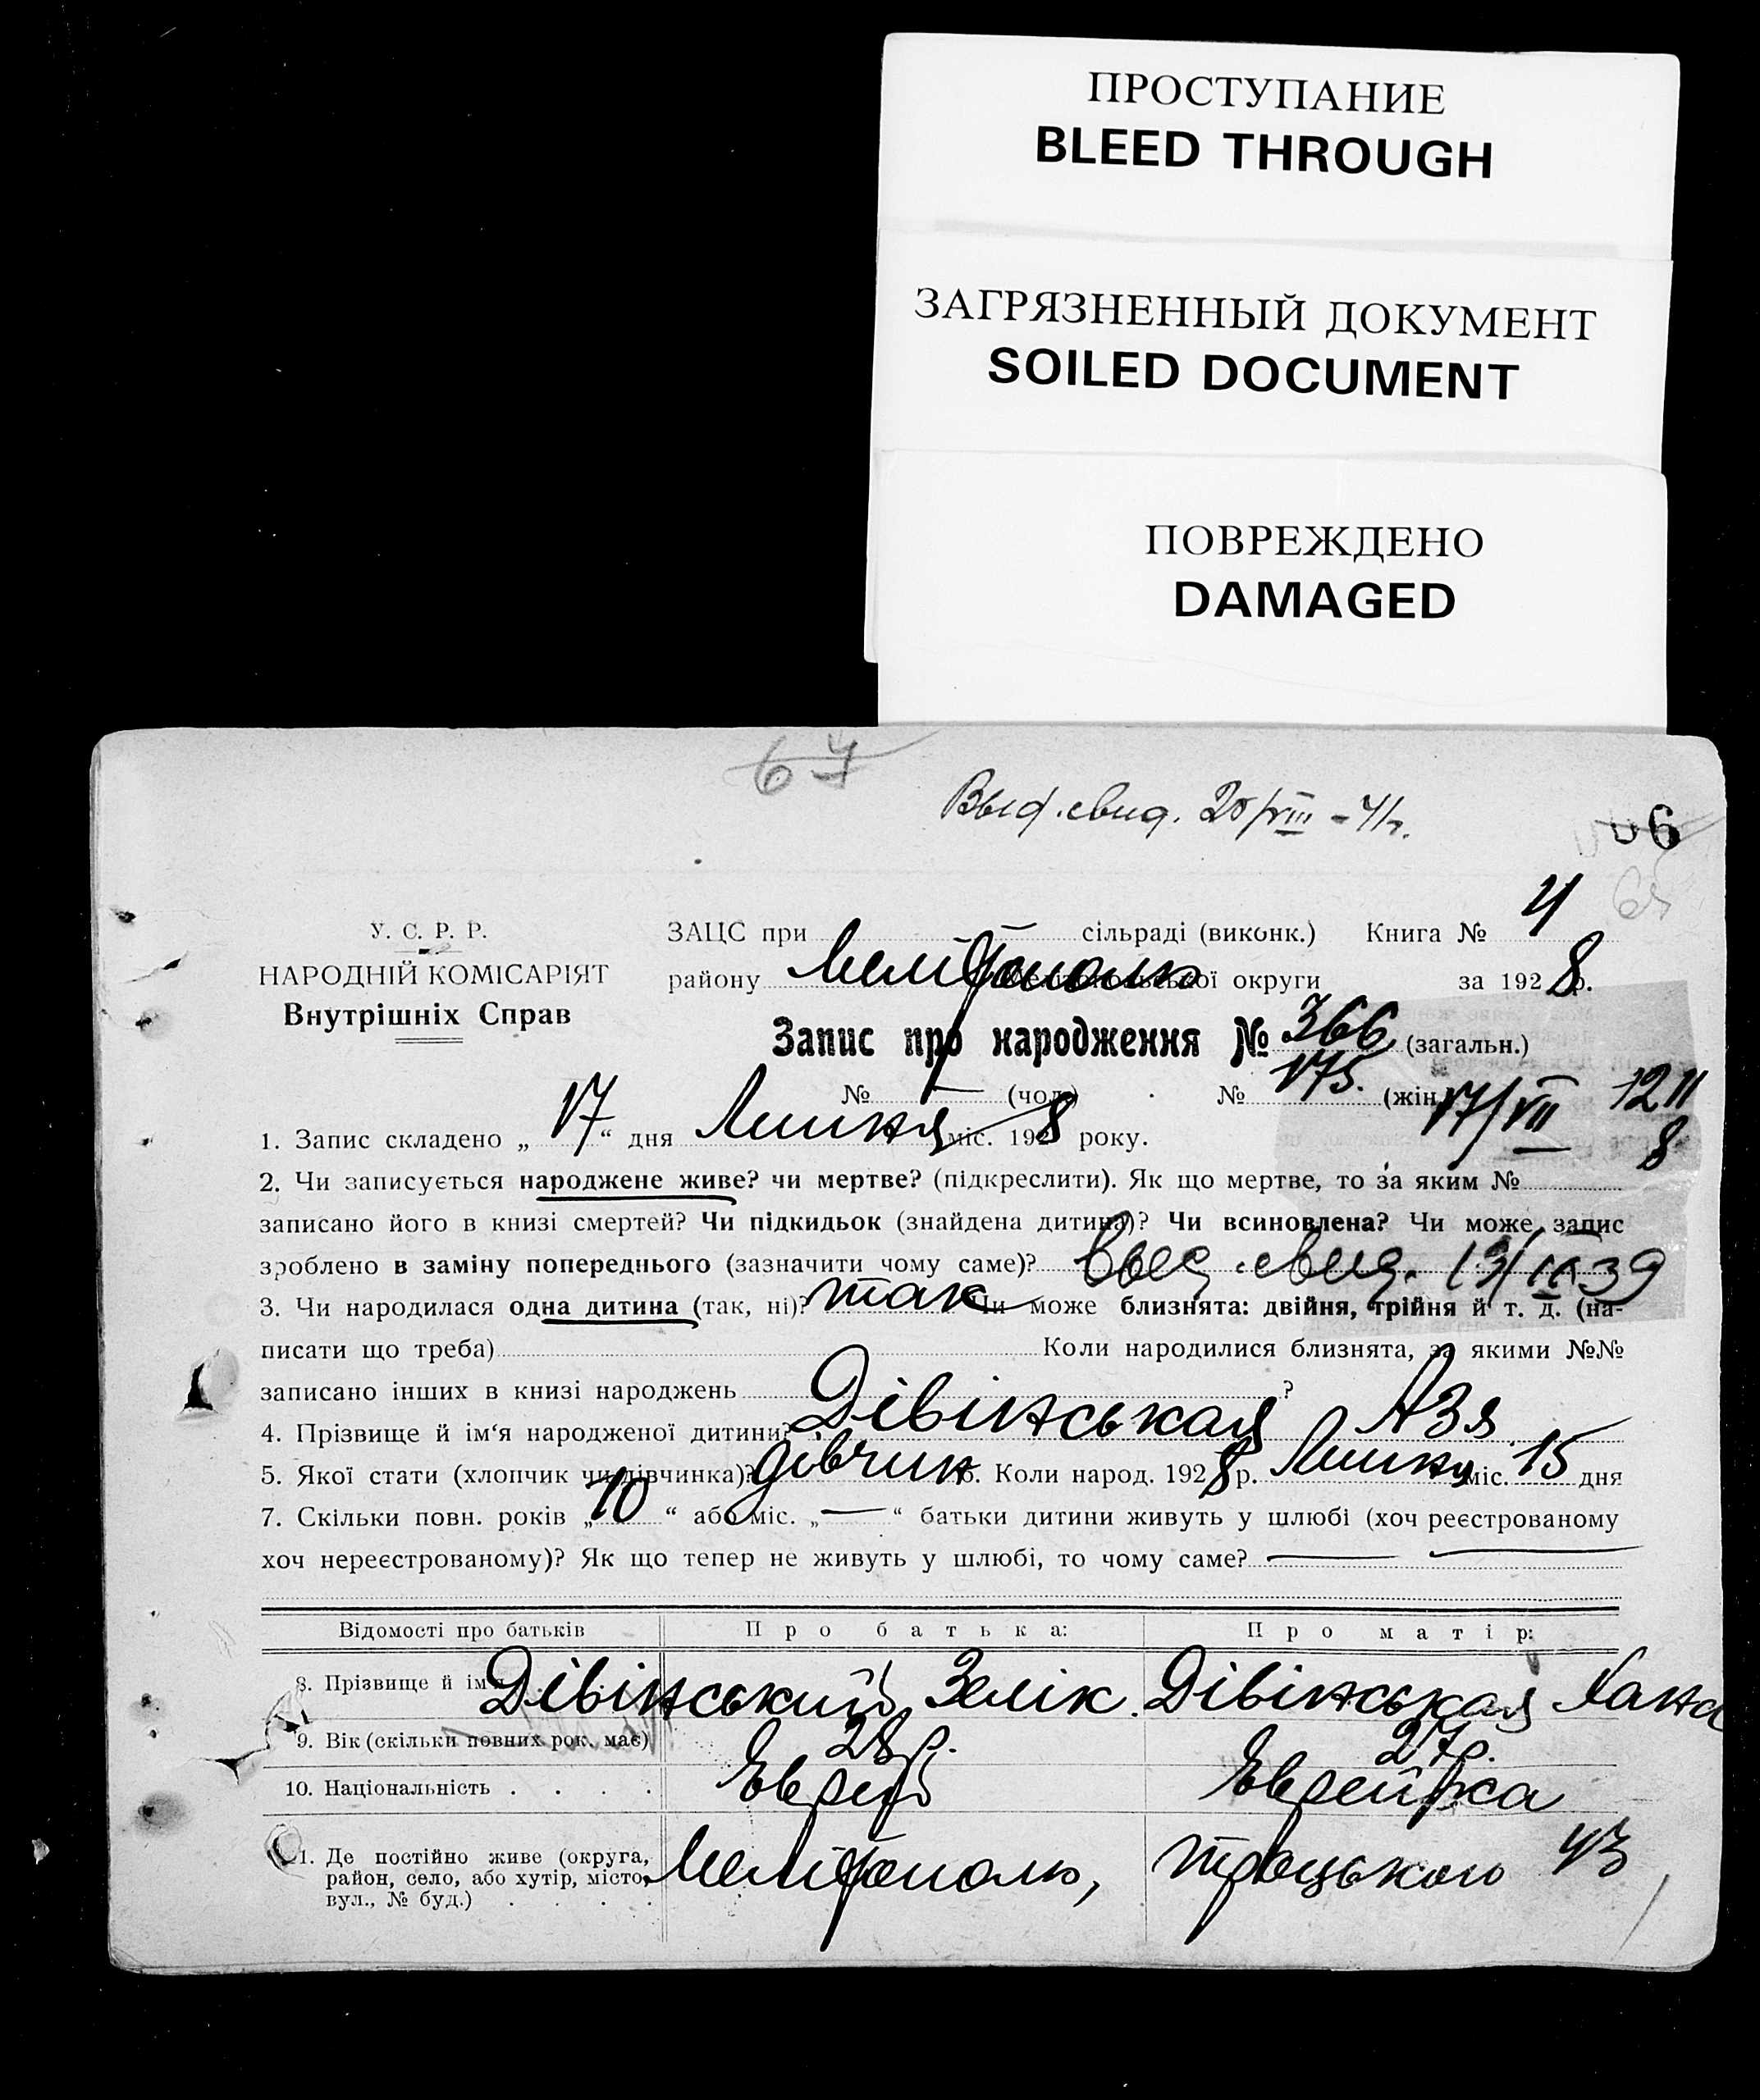 ПРОСТУПАНИЕ
BLEED THROUGH
ЗАГРЯЗНЕННЫЙ ДОКУМЕНТ
SOILED DOCUMENT
ПОВРЕЖДЕНО
DAMAGED
67
Выд. свид. 20/VIII - 41г.
6
У. С. Р. Р.
НАРОДНІЙ КОМІСАРІЯТ
Внутрішніх Справ
ЗАЦС при сільраді (виконк.) Книга № 4
району Мелітополь округи за 1928 р.
Запис про народження № 366 (загальн.)
№ — (чол.) № 175. (жін.) 17/VII 12 11
8
1. Запис складено „17“ дня Липня міс. 1928 року.
2. Чи записується народжене живе? чи мертве? (підкреслити). Як що мертве, то за яким №
записано його в книзі смертей? Чи підкидьок (знайдена дитина)? Чи всиновлена? Чи може запис
зроблено в заміну попереднього (зазначити чому саме)? Выд. свид. 19/IX 39
3. Чи народилася одна дитина (так, ні)? так Чи може близнята: двійня, трійня й т. д. (на-
писати що треба) Коли народилися близнята, за якими №№
записано інших в книзі народжень ?
4. Прізвище й ім‘я народженої дитини? Дівінськая Азя
5. Якої стати (хлопчик чи дівчинка)? дівчин 6. Коли народ. 1928 р. Липня міс. 15 дня
7. Скільки повн. років „10“ або міс. „—“ батьки дитини живуть у шлюбі (хоч реєстрованому
хоч нереєстрованому)? Як що тепер не живуть у шлюбі, то чому саме? —
Відомості про батьків Про батька: Про матір:
8. Прізвище й ім'я Дівінський Зелік. Дівінськая Хана
9. Вік (скільки повних рок. має) 28 р. 27 р.
10. Національність . . . . Еврей Еврейка
11. Де постійно живе (округа, Мелітополь, Троцького 43
район, село, або хутір, місто,
вул., № буд.) . . . .